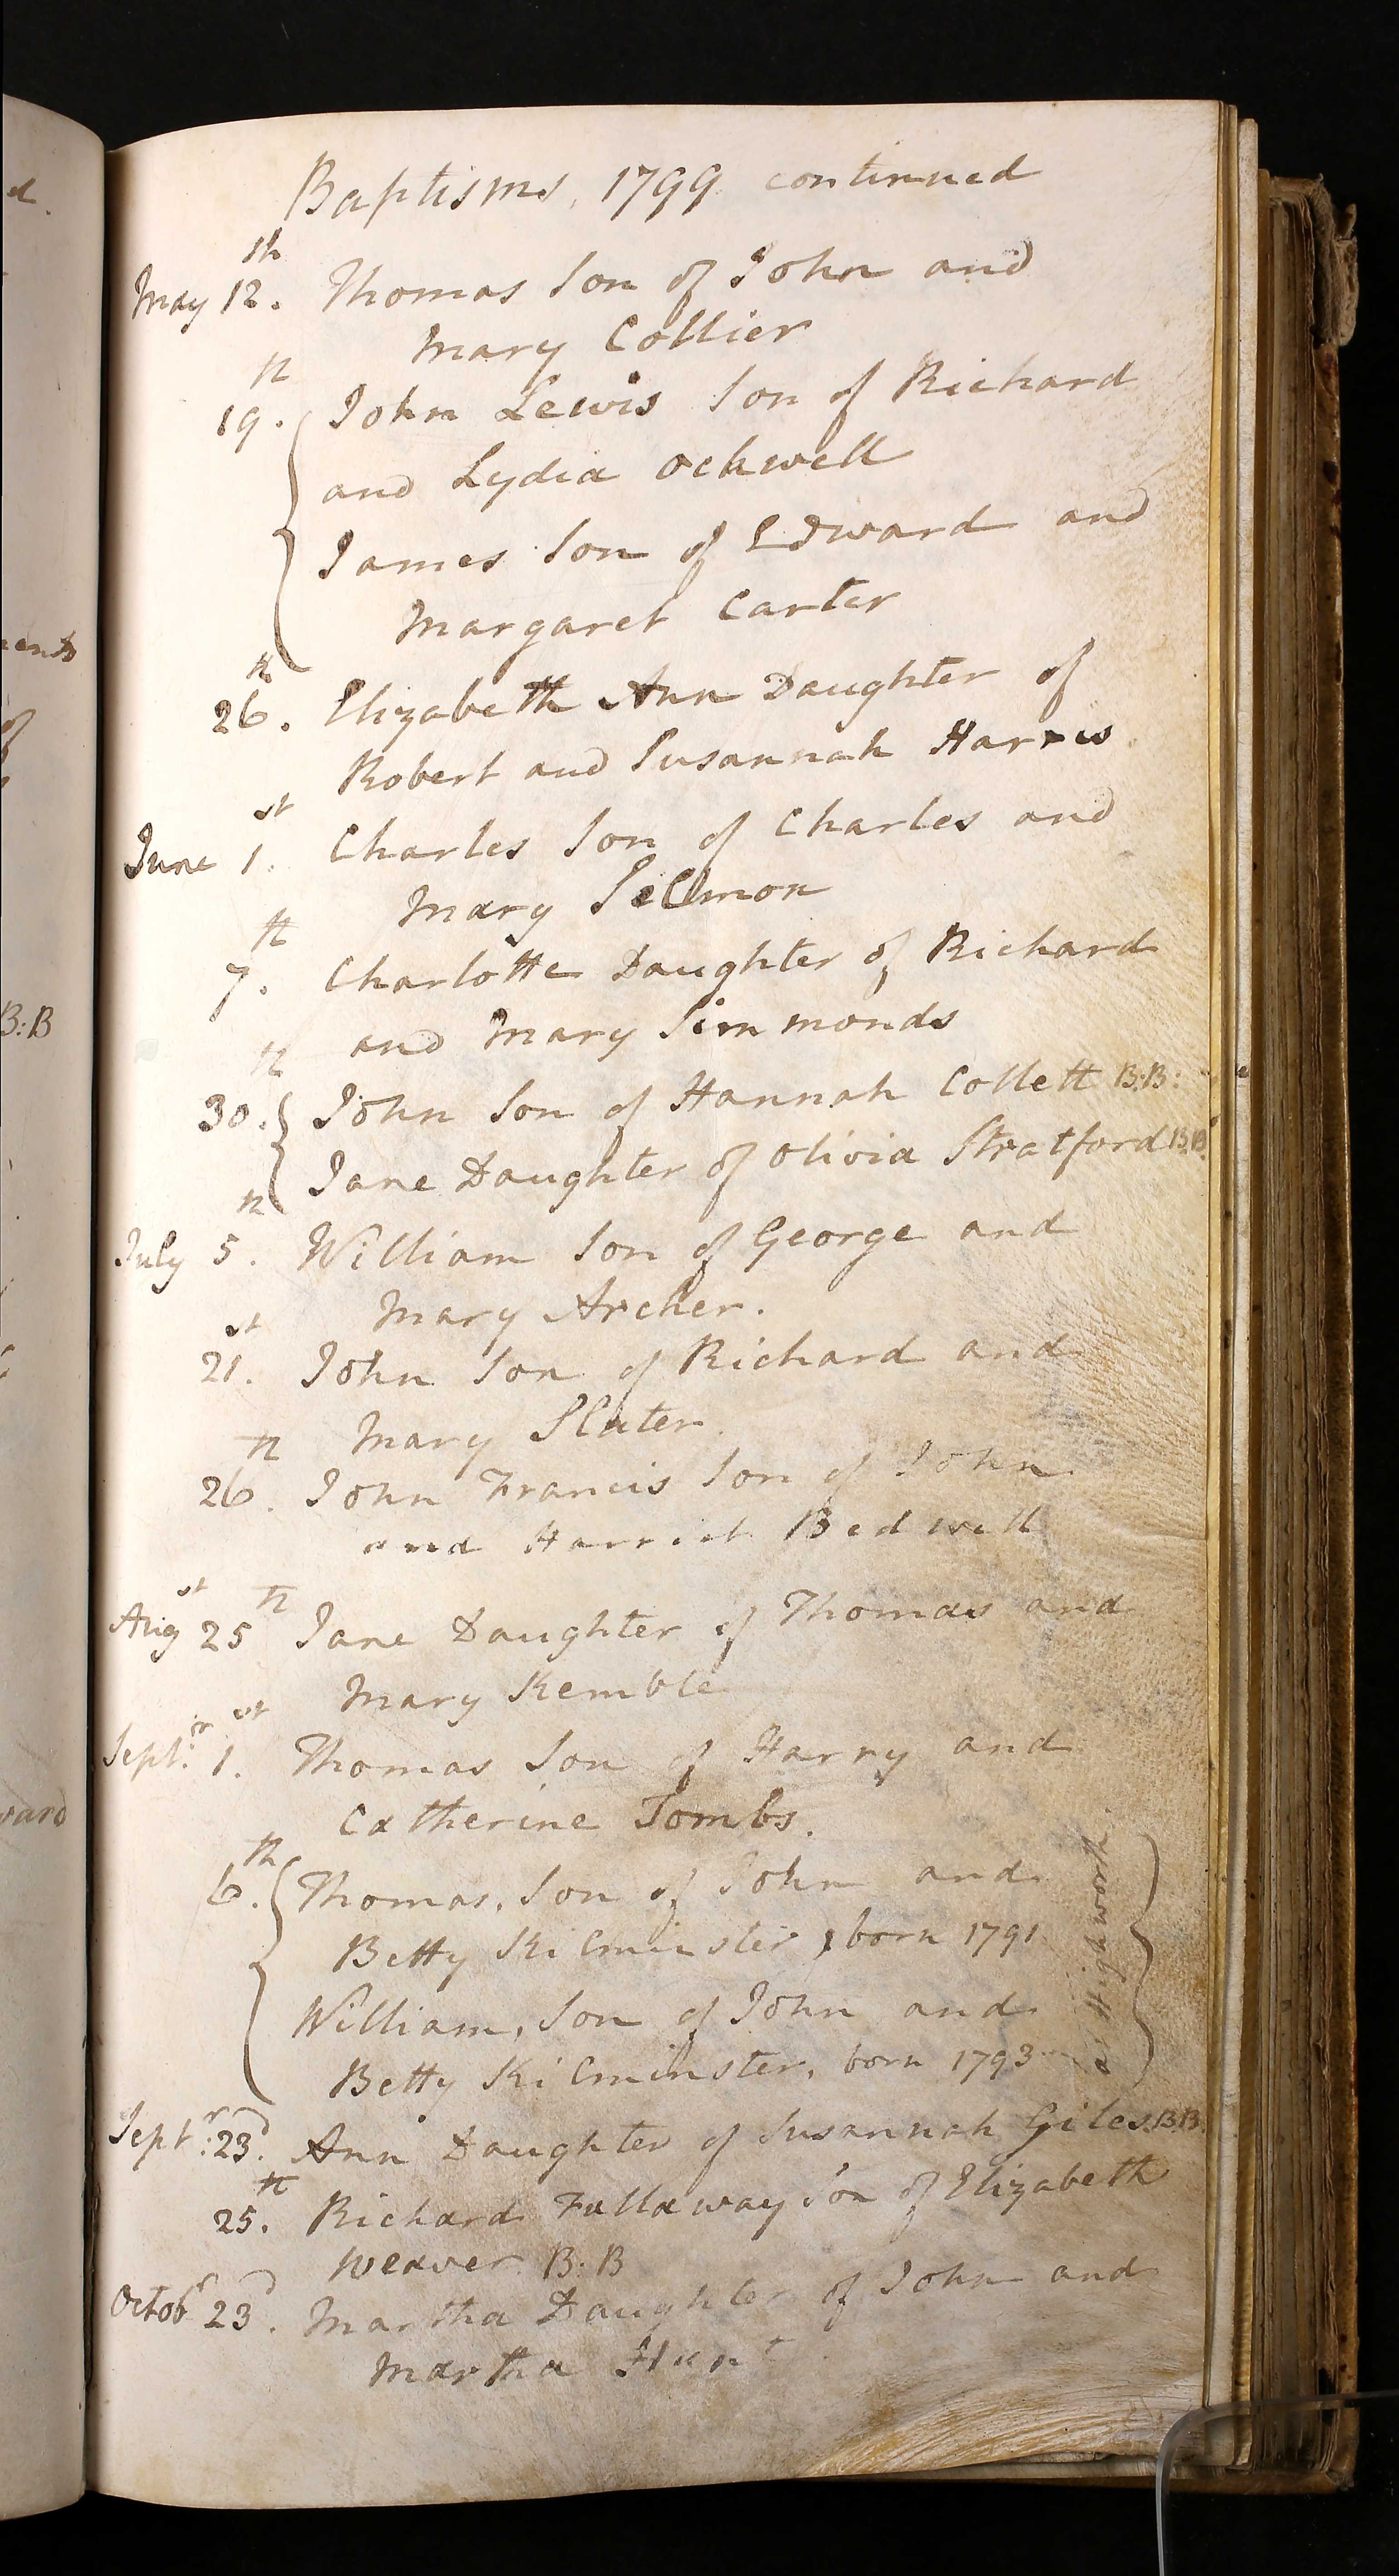 Baptisms, 1799 continued
May 12th. Thomas Son of John and
Mary Collier
19th. John Lewis Son of Richard
and Lydia Ockwell
James Son of Edward and
Margaret Carter
26th. Elizabeth Ann Daughter of
Robert and Susannah Harris
June 1st. Charles Son of Charles and
Mary Sellmon
7th. Charlotte Daughter of Richard
and Mary Simmonds
30th. John Son of Hannah Collett B:B:
Jane Daughter of Olivia Stratford B:B:
July 5th. William Son of George and
Mary Archer.
21st. John Son of Richard and
Mary Slater
26th. John Francis Son of John
and Harriet Bedwell
Augst 25th Jane Daughter of Thomas and
Mary Kemble
Septr. 1st. Thomas Son of Harry and
Catherine Tombs.
6th. Thomas, Son of John and
Betty Kilminster, born 1791
William, Son of John and
Betty Kilminster, born 1793
at Highworth.
Septr. 23d. Ann Daughter of Susannah Giles B:B
25th. Richard Fallaway Son of Elizabeth
Weaver B:B
Octobr 23d. Martha Daughter of John and
Martha Hunt
B:B